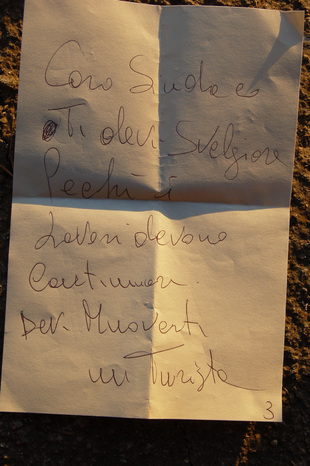 Caro Sindaco
Ti devi Svelgiare
Pechè i
Lavori devono
Continuare.
Devi Muoverti
un Turista
3